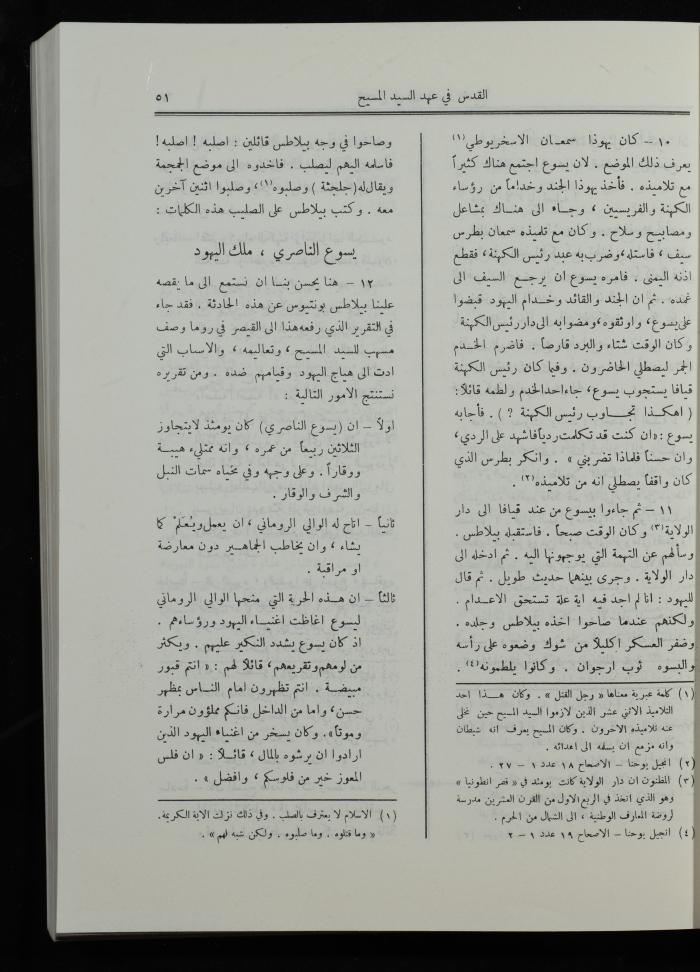 القدس في عهد السيد المسيح
٥١
١٠ – كان يهوذا سمعان الاسخريوطي(١)
يعرف ذلك الموضع . لان يسوع اجتمع هناك كثيراً
مع تلاميذه . فأخذ يهوذا الجند وخداماً من رؤساء
الكهنة والفريسيين ، وجاء الى هناك بمشاعل
ومصابيح وسلاح . وكان مع تلميذه سمعان بطرس
سيف ، فاستله، وضرب به عبد رئيس الكهنة، فقطع
اذنه اليمنى . فامره يسوع ان يرجع السيف الى
غمده . ثم ان الجند والقائد وخدام اليهود قبضوا
على يسوع، واوثقوه، ومضوا به الى دار رئيس الكهنة
وكان الوقت شتاء والبرد قارصاً . فاضرم الخدم
الجمر ليصطلي الحاضرون . وفيما كان رئيس الكهنة
قيافا يستجوب يسوع، جاء احد الخدم ولطمه قائلاً:
( اهكذا تجاوب رئيس الكهنة ? ) . فأجابه
يسوع : «ان كنت قد تكلمت ردياً فاشهد على الردي،
وان حسناً فلماذا تضربني » . وانكر بطرس الذي
كان واقفاً يصطلي انه من تلاميذه(٢) .
١١ – ثم جاءوا بيسوع من عند قيافا الى دار
الولاية(٣) وكان الوقت صبحاً . فاستقبله بيلاطس .
وسألهم عن التهمة التي يوجهونها اليه . ثم ادخله الى
دار الولاية . وجرى بينهما حديث طويل . ثم قال
لليهود : انا لم اجد فيه اية علة تستحق الاعدام .
ولكنهم عندما صاحوا اخذه بيلاطس وجلده .
وضفر العسكر اكليلاً من شوك وضعوه على رأسه
والبسوه ثوب ارجوان . وكانوا يلطمونه(٤) .
(١) كلمة عبرية معناها « رجل القتل » . وكان هذا احد
التلاميذ الاثني عشر الذين لازموا السيد المسيح حين تخلى
عنه تلاميذه الآخرون . وكان المسيح يعرف انه شيطان
وانه مزمع ان يسلمه الى اعدائه .
(٢) انجيل يوحنا – الاصحاح ١٨ عدد ١ – ٢٧ .
(٣) المظنون ان دار الولاية كانت يومئذ في « قصر انطونيا »
وهو الذي اتخذ في الربع الاول من القرن العشرين مدرسة
لروضة المعارف الوطنية ، الى الشمال من الحرم .
(٤) انجيل يوحنا – الاصحاح ١٩ عدد ١ – ٢
وصاحوا في وجه بيلاطس قائلين : اصلبه ! اصلبه!
فاسلمه اليهم ليصلب . فاخذوه الى موضع الجمجمة
ويقال له ( جلجثة ) وصلبوه(١)، وصلبوا اثنين آخرين
معه . وكتب بيلاطس على الصليب هذه الكلمات :
يسوع الناصري ، ملك اليهود
١٢ – هنا يحسن بنا ان نستمع الى ما يقصه
علينا بيلاطس بونتيوس عن هذه الحادثة . فقد جاء
في التقرير الذي رفعه هذا الى القيصر في روما وصف
مسهب للسيد المسيح ، وتعاليمه ، والاسباب التي
ادت الى هياج اليهود وقيامهم ضده . ومن تقريره
نستنتج الامور التالية :
اولاً – ان (يسوع الناصري) كان يومئذ لا يتجاوز
الثلاثين ربيعاً من عمره ، وانه ممتلىء هيبة
ووقاراً . وعلى وجهه وفي محياه سمات النبل
والشرف والوقار .
ثانياً – اتاح له الوالي الروماني ، ان يعمل ويُعَلِّمْ كما
يشاء ، وان يخاطب الجماهير دون معارضة
او مراقبة .
ثالثاً – ان هذه الحرية التي منحها الوالي الروماني
ليسوع اغاظت اغنياء اليهود ورؤساءهم .
اذ كان يسوع يشدد النكير عليهم . ويكثر
من لومهم وتقريعهم، قائلاً لهم : « انتم قبور
مبيضة . انتم تظهرون امام الناس بمظهر
حسن، واما من الداخل فانكم مملؤون مرارة
وموتاً». وكان يسخر من اغنياء اليهود الذين
ارادوا ان يرشوه بالمال ، قائلاً : « ان فلس
المعوز خير من فلوسكم ، وافضل » .
(١) الاسلام لا يعترف بالصلب . وفي ذلك نزلت الآية الكريمة.
« وما قتلوه . وما صلبوه . ولكن شبه لهم » .